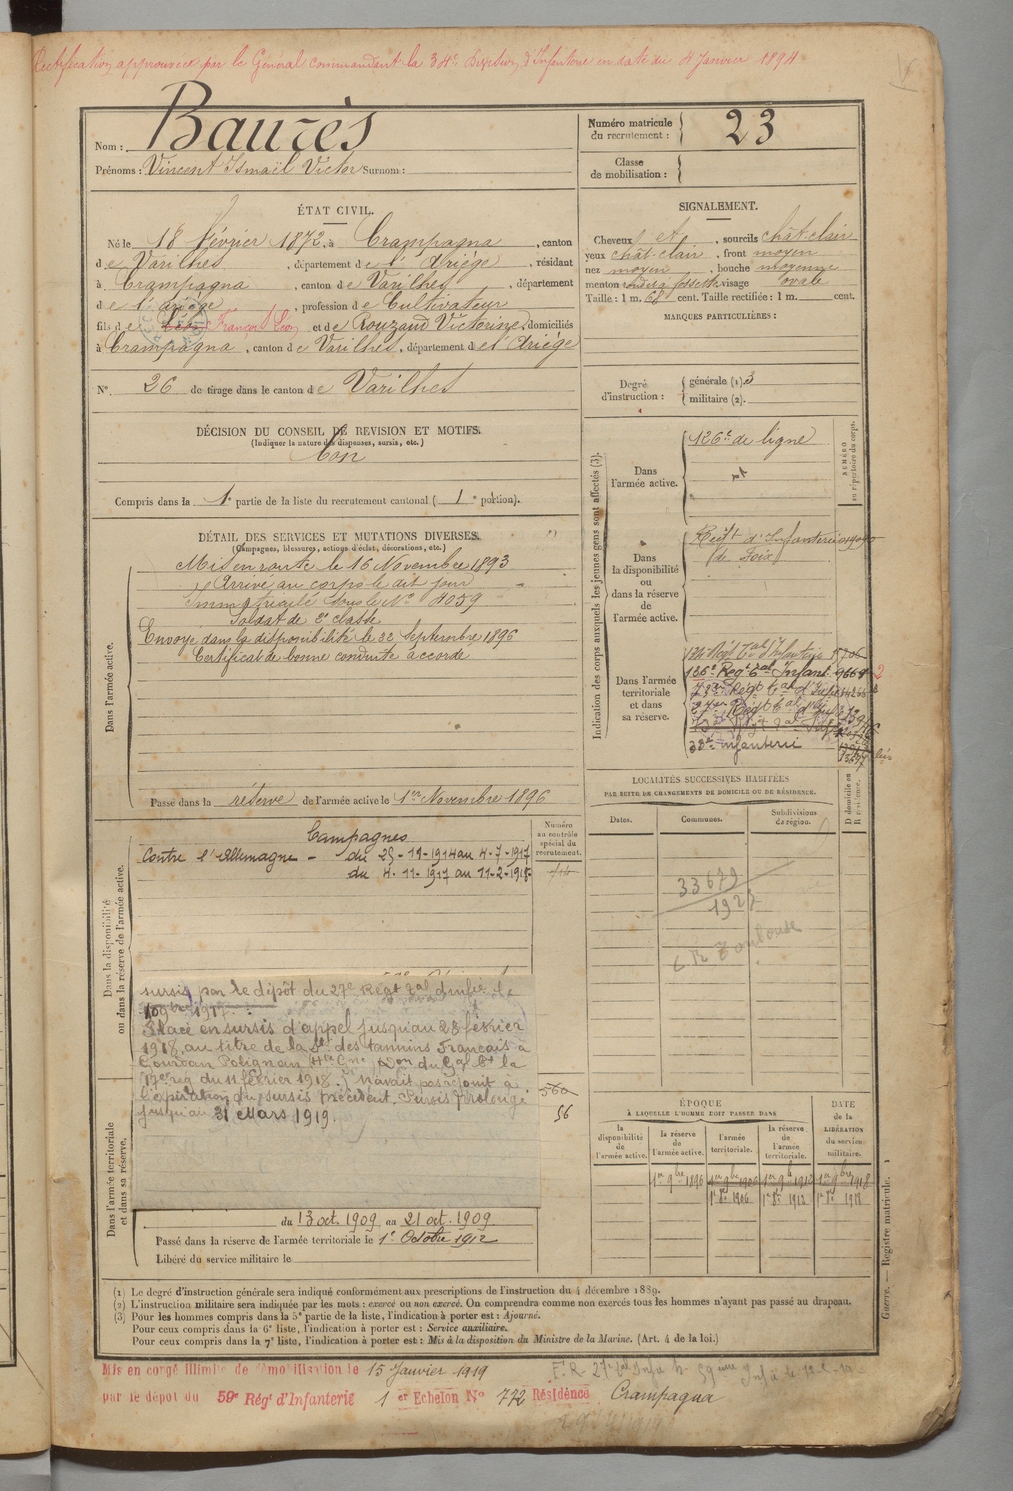 Rectification approuvée par le Général commandant la 34e Division d'Infanterie en date du 4 Janvier 1894
Nom : Baurès
Prénoms : Vincent Ismaël Victor Surnom :
Numéro matricule du recrutement : 23
Classe de mobilisation :
ÉTAT CIVIL.
Né le 18 février 1872, à Crampagna, canton
de Varilhes, département de l'Ariège, résidant
à Crampagna, canton de Varilhes, département
de l'Ariège, profession de Cultivateur
fils de Léon François Léon et de Rouzaud Victorine, domiciliés
à Crampagna, canton de Varilhes, département de l'Ariège
No. 26 de tirage dans le canton de Varilhes
SIGNALEMENT.
Cheveux et, sourcils chât clair
yeux chât clair, front moyen
nez moyen, bouche moyenne
menton rond à fossette visage ovale
Taille : 1 m. 68 cent. Taille rectifiée : 1 m. cent.
MARQUES PARTICULIÈRES :
Degré d'instruction : générale (1). 3
militaire (2).
DÉCISION DU CONSEIL DE REVISION ET MOTIFS.
(Indiquer la nature des dispenses, sursis, etc.)
Bon
Compris dans la 1e partie de la liste du recrutement cantonal ( 1e portion).
DÉTAIL DES SERVICES ET MUTATIONS DIVERSES.
(Campagnes, blessures, actions d'éclat, décorations, etc.)
Dans l'armée active.
Mis en route le 16 Novembre 1893
Arrivé au corps le dit jour
Immatriculé sous le No 4059
Soldat de 2e classe
Envoyé dans la disponibilité le 22 Septembre 1896
Certificat de bonne conduite accordé
Passé dans la réserve de l'armée active le 1er Novembre 1896
Indication des corps auxquels les jeunes gens sont affectés (3).
NUMÉRO au répertoire du corps.
Dans l'armée active.
126e de ligne
Dans la disponibilité ou dans la réserve de l'armée active.
Régt d'Infanterie
de Foix
Dans l'armée territoriale et dans sa réserve.
Régt Tal d'Infanterie
136e Régt Tal Infant.
33e infanterie
LOCALITÉS SUCCESSIVES HABITÉES
PAR SUITE DE CHANGEMENTS DE DOMICILE OU DE RÉSIDENCE.
Dates.
Communes.
Subdivisions de région.
D domicile ou R résidence.
33679
1927
C R Toulouse
Dans la disponibilité ou dans la réserve de l'armée active.
Numéro au contrôle spécial du recrutement.
Campagnes
Contre l'Allemagne - du 25-12-1914 au 4-7-1917
du 4-11-1917 au 11-2-1918
sursis par le dépôt du 27e Régt Tal d'infie le
10 9bre 1917.
Placé en sursis d'appel jusqu'au 28 février
1918 au titre de la Sté des tannins Français à
Gourdan Polignan (Hte Gne) Don du Gal Ct la
17e reg du 11 février 1918. N'avait pas rejoint à
l'expiration du sursis précédent. Sursis prolongé
jusqu'au 31 Mars 1919.
560
56
Dans l'armée territoriale et dans sa réserve.
du 13 oct. 1909 au 21 oct. 1909
Passé dans la réserve de l'armée territoriale le 1er Octobre 1912
Libéré du service militaire le
ÉPOQUE
À LAQUELLE L'HOMME DOIT PASSER DANS
la disponibilité de l'armée active.
la réserve de l'armée active.
l'armée territoriale.
la réserve de l'armée territoriale.
DATE de la LIBÉRATION du service militaire.
1er 9bre 1896
1er 9bre 1906
1er 9b 1912
1er 9bre 1918
1er 8e 1906
1er 8e 1912
1er 8e 1918
(1) Le degré d'instruction générale sera indiqué conformément aux prescriptions de l'instruction du 4 décembre 1889.
(2) L'instruction militaire sera indiquée par les mots : exercé ou non exercé. On comprendra comme non exercés tous les hommes n'ayant pas passé au drapeau.
(3) Pour les hommes compris dans la 5e partie de la liste, l'indication à porter est : Ajourné.
Pour ceux compris dans la 6e liste, l'indication à porter est : Service auxiliaire.
Pour ceux compris dans la 7e liste, l'indication à porter est : Mis à la disposition du Ministre de la Marine. (Art. 4 de la loi.)
Guerre. — Registre matricule. 1
Mis en congé illimité de démobilisation le 15 Janvier 1919
par le dépôt du 59e Rég d'Infanterie 1er Echelon No 772 Résidence Crampagna